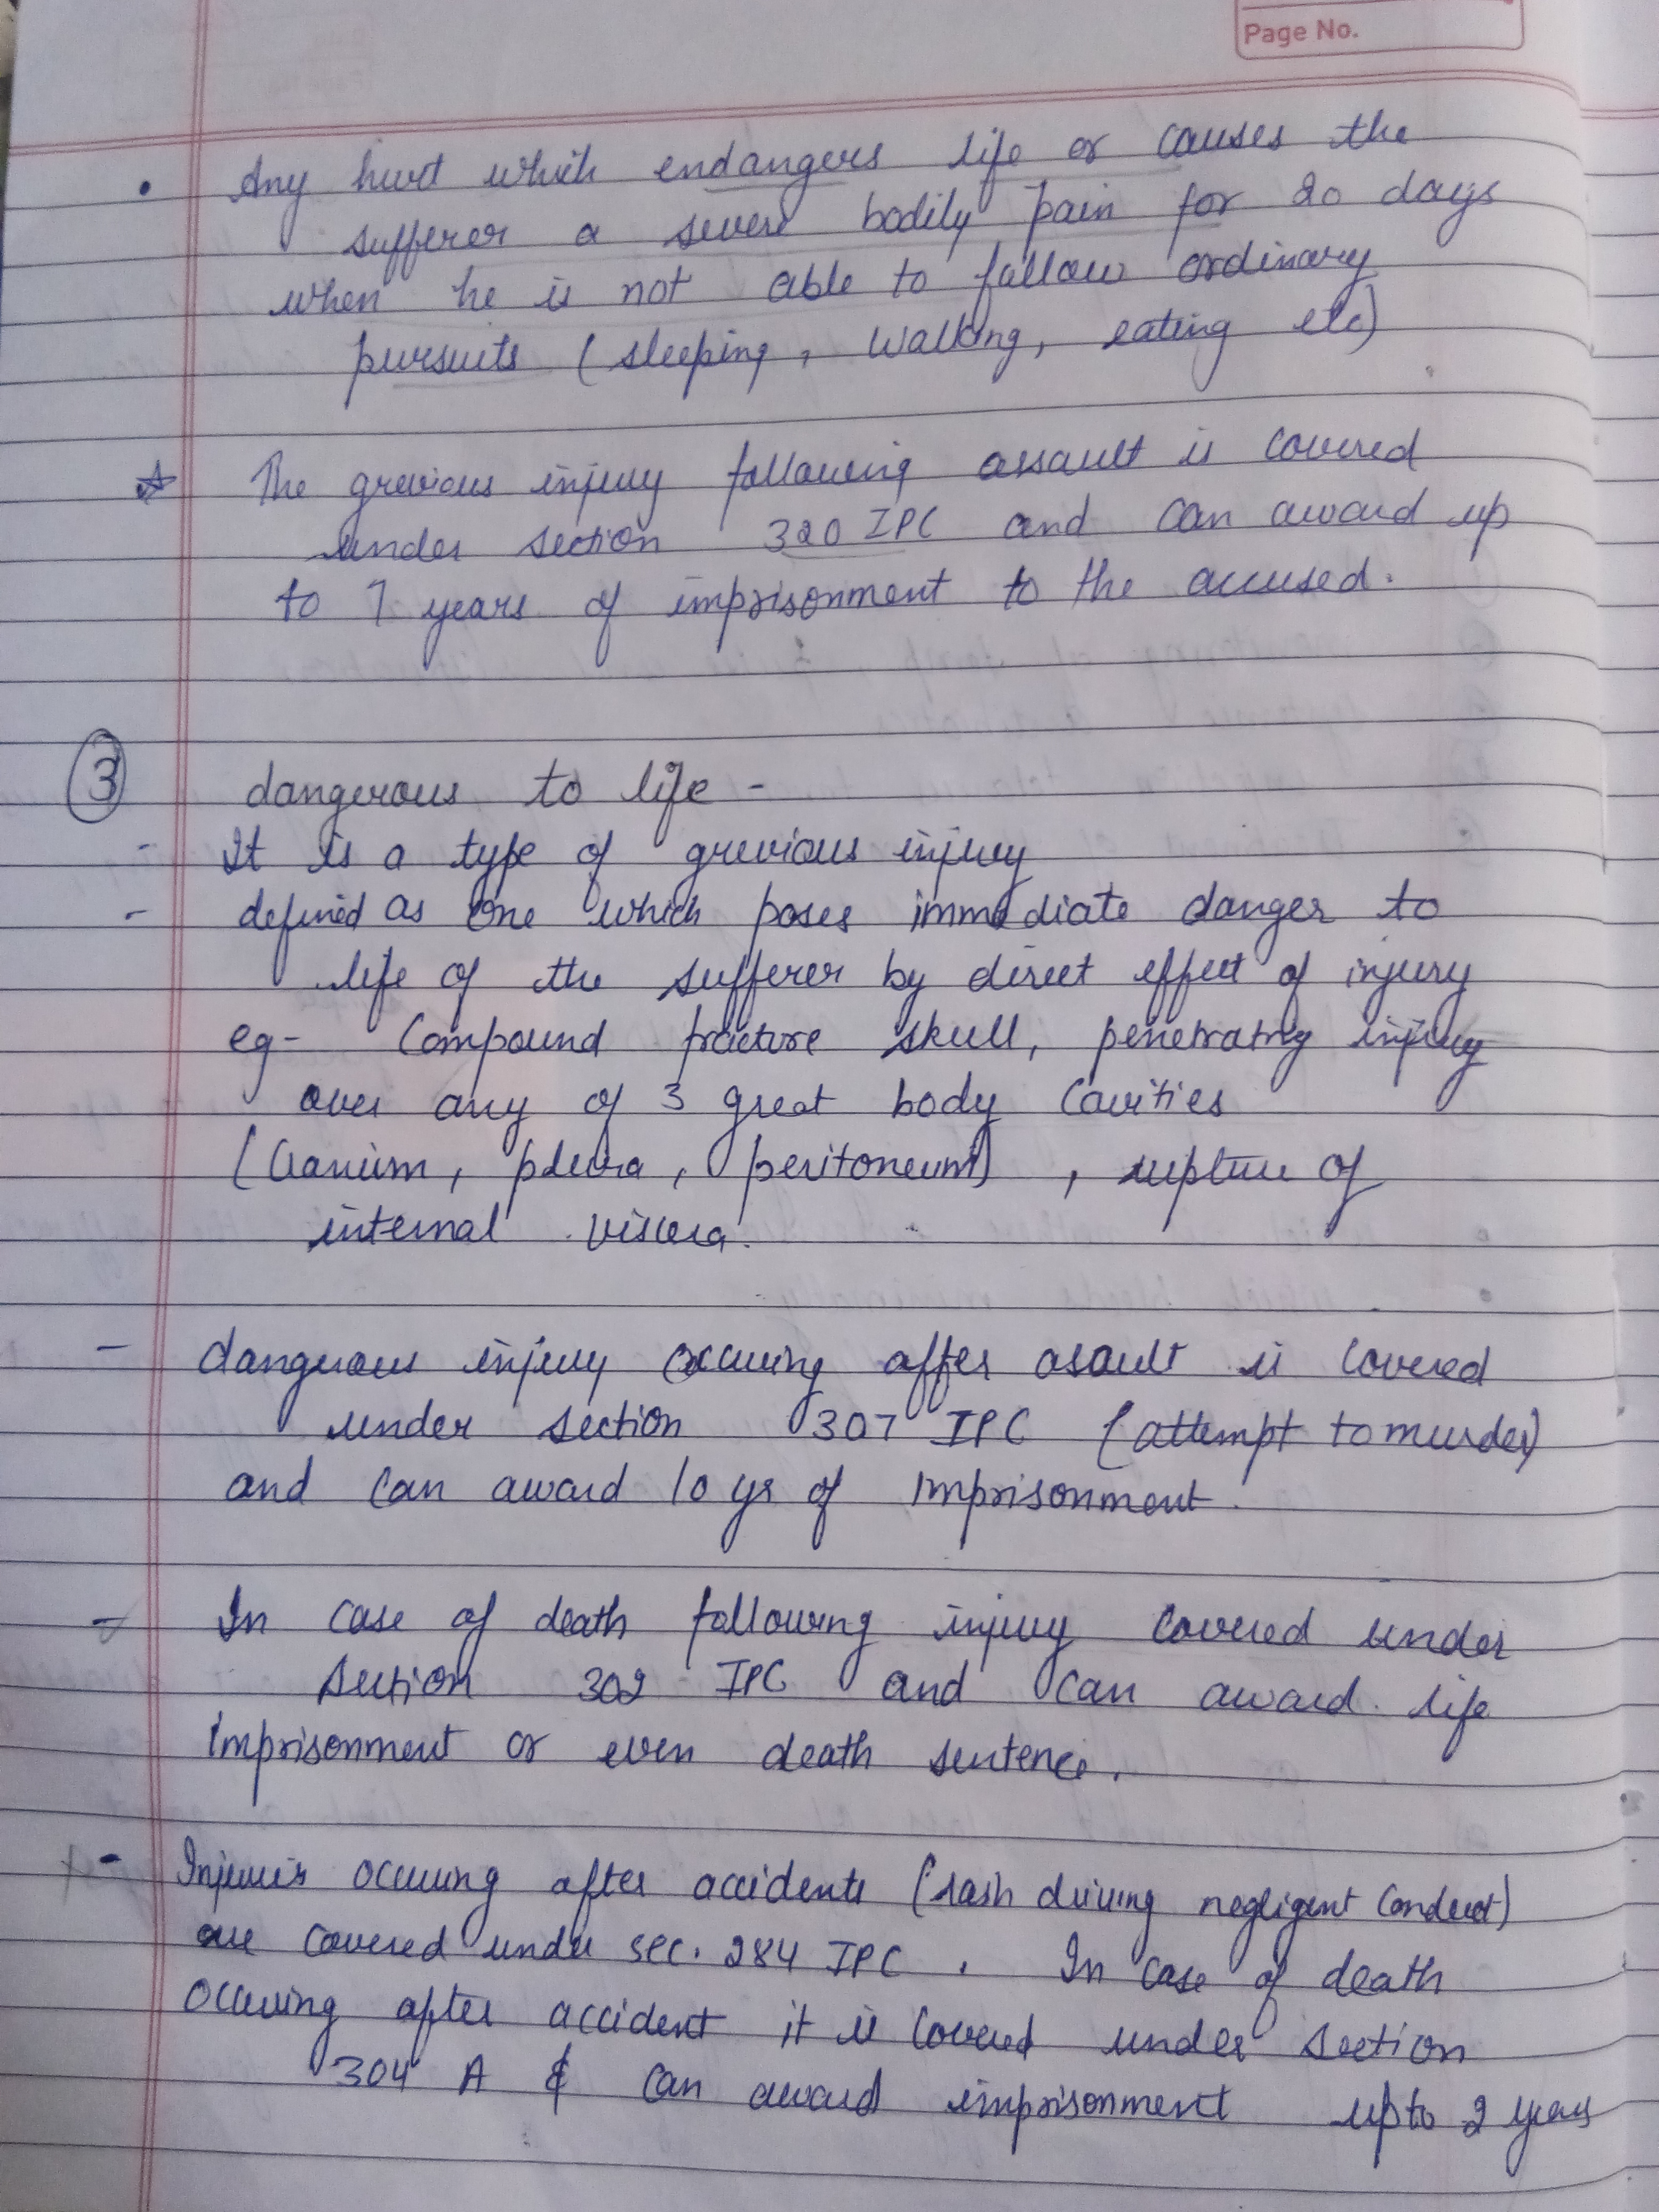 Page No.
• Any hurt which endangers life or causes the
sufferer a severe bodily pain for 20 days
when he is not able to follow ordinary
pursuits (sleeping, walking, eating etc)
☆ The grevious injury following assault is covered
under section 320 IPC and can award up
to 7 years of imprisonment to the accused.
③ dangerous to life -
- It is a type of grevious injury
- defined as one which poses immediate danger to
life of the sufferer by direct effect of injury
eg- Compound fracture skull, penetrating injury
over any of 3 great body cavities
(Cranium, pleura, peritoneum), rupture of
internal viscera.
- dangerous injury occuring after asault is covered
under section 307 IPC (attempt to murder)
and can award 10 yr of imprisonment.
- In case of death following injury covered under
section 302 IPC and can award life
imprisonment or even death sentence.
- Injuries occuring after accidents (rash driving negligent conduct)
are covered under sec. 284 IPC. In case of death
occuring after accident it is covered under section
304 A & can award imprisonment upto 2 years